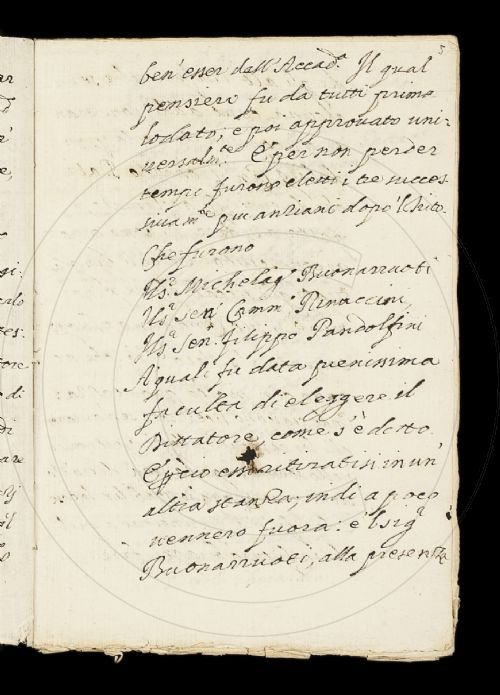 3
ben' esser dall' Accad.ª Il qual
pensiere fu da tutti prima
lodato, e poi approvato uni:
uersalm.te E per non perder
tempo furono eletti i tre succes
siuam.te piu anziani dopo 'l
Che furono
Il S.r Michelag.º Buonarruoti
Il S.r Sen. Comm.r Rinaccini,
Il S.r Sen. Filippo Pandolfini
A quali fu data pienissima
facultà di eleggere il
Dittatore, come s'è detto.
E perciò essi ritiratisi in un'
altra stanza, indi a poco
uennero fuora: e 'l sig.r
Buonarruoti, alla presenza
ar
e,
si:
tore
di
are